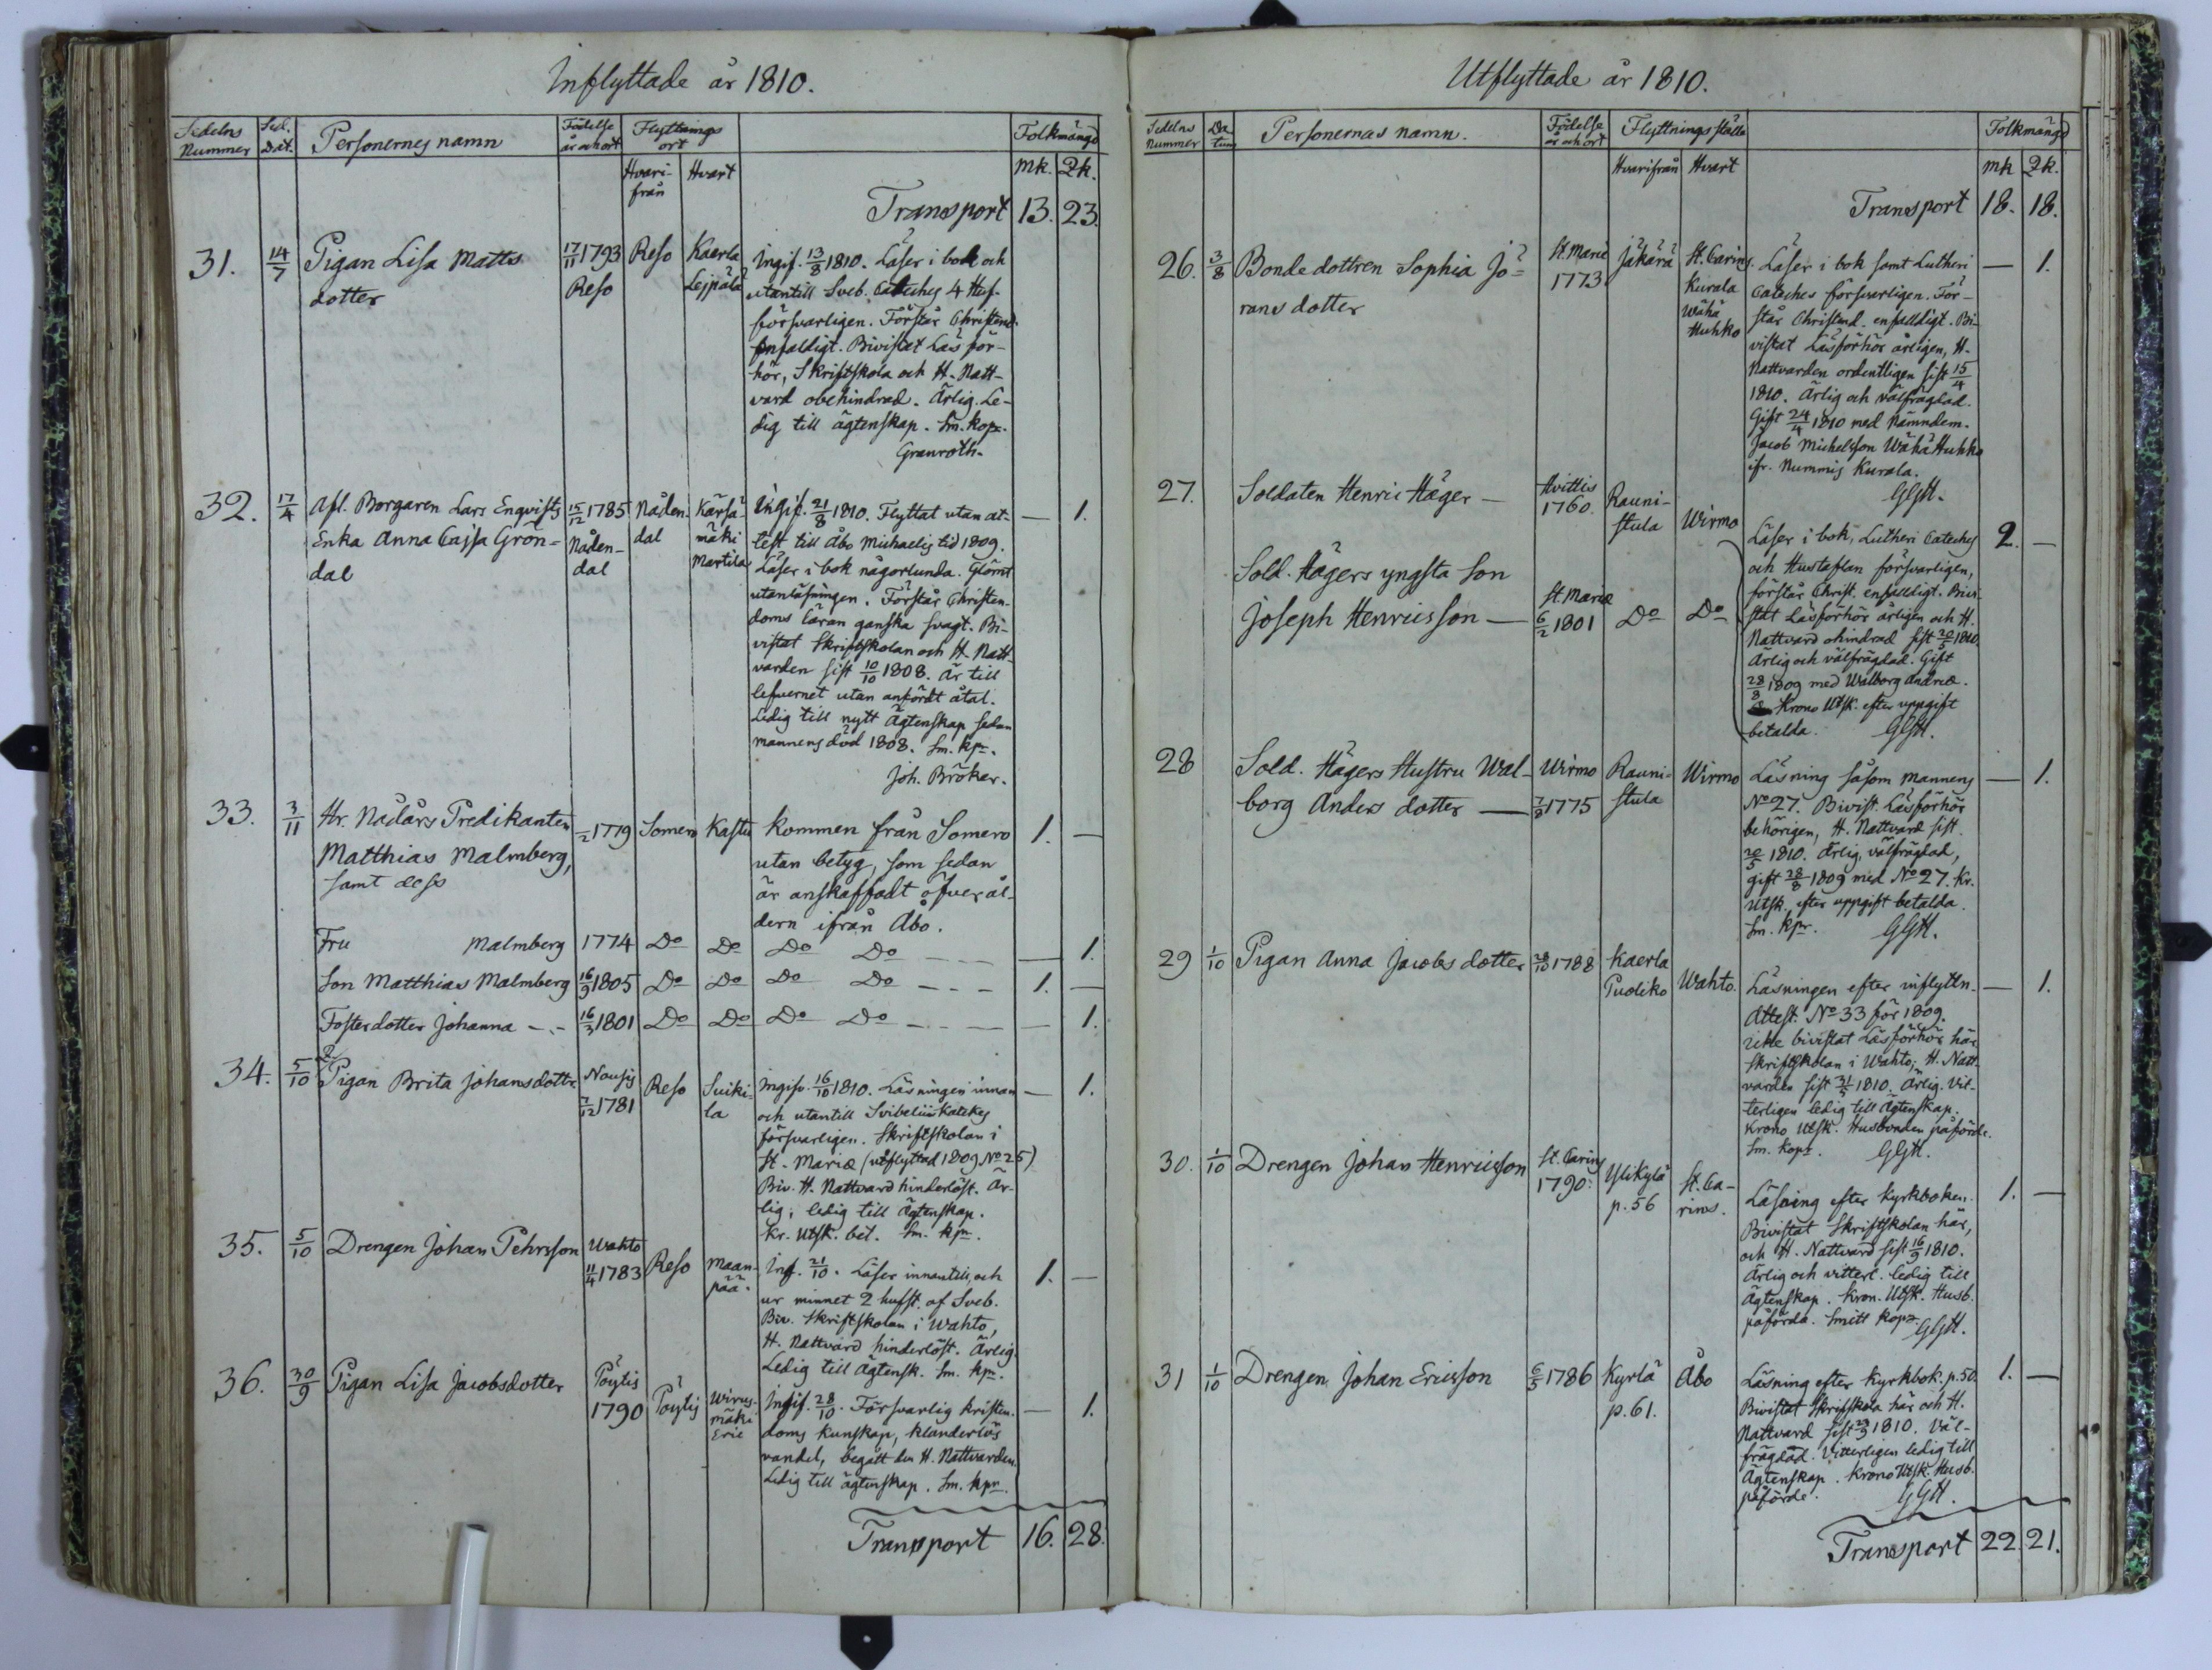 Inflyttade år 1810.
Sedelns Nummer
Sed. Dat.
Personernes namn
Födelse år och ort
Flyttnings ort
Hvarifrån
Hvart
Folkmängd
Mk. Qk.
Transport 13. 23.
31. 14/7 Pigan Lisa Matts dotter
17/11 1793 Reso
Reso
Kaerla Lejpälä
Ingif. 13/8 1810. Läser i bok och
utantill Sveb. Cateches 4 Huf.
försvarligen. Förstår Christend.
enfaldigt. Bivistat Läsför-
hör, Skriftskola och H. Natt-
vard obehindrad. Ärlig. Le-
dig till ägtenskap. Sm. kop.
Granroth.
32. 17/4 Afl. Borgaren Lars Enqvists
Enka Anna Cajsa Grön-
dal
15/12 1785 Nådendal
Nådendal
Kärsämäki Martila
Ingif. 21/8 1810. Flyttat utan at-
test till Åbo Michaelis tid 1809.
Läser i bok någorlunda. Glömt
utanläsningen. Förstår Christen-
doms läran ganska svagt. Bi-
vistat Skriftskolan och H. Natt-
varden sist 10/10 1808. Är till
lefvernet utan anfördt åtal.
Ledig till nytt Ägtenskap sedan
mannens död 1808. Sm. kpr.
Joh. Bröker.
— 1.
33. 3/11 Hr. Nådårs Predikanten
Matthias Malmberg,
samt dess
/2 1779
Somero
Kastu
Kommen från Somero
utan betyg, som sedan
är anskaffadt öfver ål-
dern ifrån Åbo.
1. —
Fru Malmberg 1774 Do Do Do Do — 1.
Son Matthias Malmberg 16/9 1805 Do Do Do Do 1. —
Foster dotter Johanna 16/3 1801 Do Do Do Do — 1.
34. 5/10 Pigan Brita Johansdotter
Nousis 7/12 1781
Reso
Suikila
Ingif. 16/10 1810. Läsningen innan
och utantill Svibelii Katekes
försvarligen. Skriftskolan i
St. Mariæ (utflyttad 1809 No 25)
Biv. H. Nattvard hinderlöst. Är-
lig; ledig till Ägtenskap.
Kr. Utsk. bet. Sm. kpr.
— 1.
35. 5/10 Drengen Johan Pehrsson
Wahto 11/4 1783
Reso
Maanpää.
Inf. 21/10. Läser innantill, och
ur minnet 2 hufst. af Sveb.
Biv. Skriftskolan i Wahto,
H. Nattvard hinderlöst. Ärlig.
Ledig till Ägtensk. Sm. kpr.
1. —
36. 30/9 Pigan Lisa Jacobsdotter
Pöytis 1790
Pöytis
Wirusmäki Eric
Ingif. 28/10. Försvarlig Kristen-
doms kunskap, klanderlös
vandel, begått den H. Nattvarden.
Ledig till ägtenskap. Sm. kpr.
— 1.
Transport 16. 28.
Utflyttade år 1810.
Sedelns Nummer
Datum
Personernas namn.
Födelse år och ort
Flyttnings ställe
Hvarifrån
Hvart
Folkmängd
Mk Qk.
Transport 18. 18.
26. 3/8 Bonde dottren Sophia Jö-
rans dotter
St. Mariæ 1773
Jäkärä
St. Carins Kurala Wähä Huhko
Läser i bok samt Lutheri
Cateches försvarligen. För-
står Christend. enfalldigt. Bi-
vistat Läsförhör årligen, H.
Nattvarden ordentligen sist 15/4
1810. Ärlig och välfrägdad.
Gift 24/4 1810 med Nämndem.
Jacob Michelsson Wähä Huhko
ifr. Nummis Kurala.
GGH.
— 1.
27. Soldaten Henric Häger —
Hvittis 1760
Raunistula
Wirmo
Sold. Hägers yngsta Son
Joseph Henricsson —
St. Mariæ 6/2 1801
Do Do
Läser i bok, Lutheri Cateches
och Hustaflan försvarligen,
förstår Christ. enfalldigt. Bivi-
stat Läsförhör årligen och H.
Nattvard ohindrad sist 20/5 1810.
Ärlig och välfrägdad. Gift
28/8 1809 med Walborg Andersd.
Krono Utsk. efter uppgift
betalda. GGH.
2. —
28 Sold. Hägers Hustru Wal-
borg Anders dotter —
Wirmo 7/8 1775
Raunistula
Wirmo
Läsning såsom Mannens
No 27. Bivist. Läsförhör
behörigen, H. Nattvard sist
20/5 1810. Ärlig, välfrägdad,
gift 28/8 1809 med No 27. Kr.
Utsk. efter uppgift betalda.
Sm. kpr. GGH.
— 1.
29 1/10 Pigan Anna Jacobs dotter
28/10 1788
Kaerla Puoliko
Wahto.
Läsningen efter inflyttn.
Attest. No 33 för 1809.
icke bivistat Läsförhör här
Skriftskolan i Wahto; H. Natt-
varden sist 31/5 1810. Ärlig. Vit-
terligen ledig till Ägtenskap.
Krono Utsk. Husbonden påförde.
Sm. kopr. GGH.
— 1.
30. 1/10 Drengen Johan Henricsson
St. Carins 1790.
Ylikylä p. 56
St. Carins.
Läsning efter Kyrkboken.
Bivistat Skriftskolan här,
och H. Nattvard sist 16/9 1810.
Ärlig och vitterl. ledig till
Ägtenskap. Kron. Utsk. Husb.
påförda. Smitt kopr. GGH.
1. —
31 1/10 Drengen Johan Ericsson
6/5 1786
Kyrlä p. 61.
Åbo
Läsning efter Kyrkbok. p. 50.
Bivistat Skriftskola här och H.
Nattvard sist 23/9 1810. Väl-
frägdad. Vitterligen ledig till
Ägtenskap. Krono Utsk. Husb.
påförde. GGH.
1. —
Transport 22. 21.